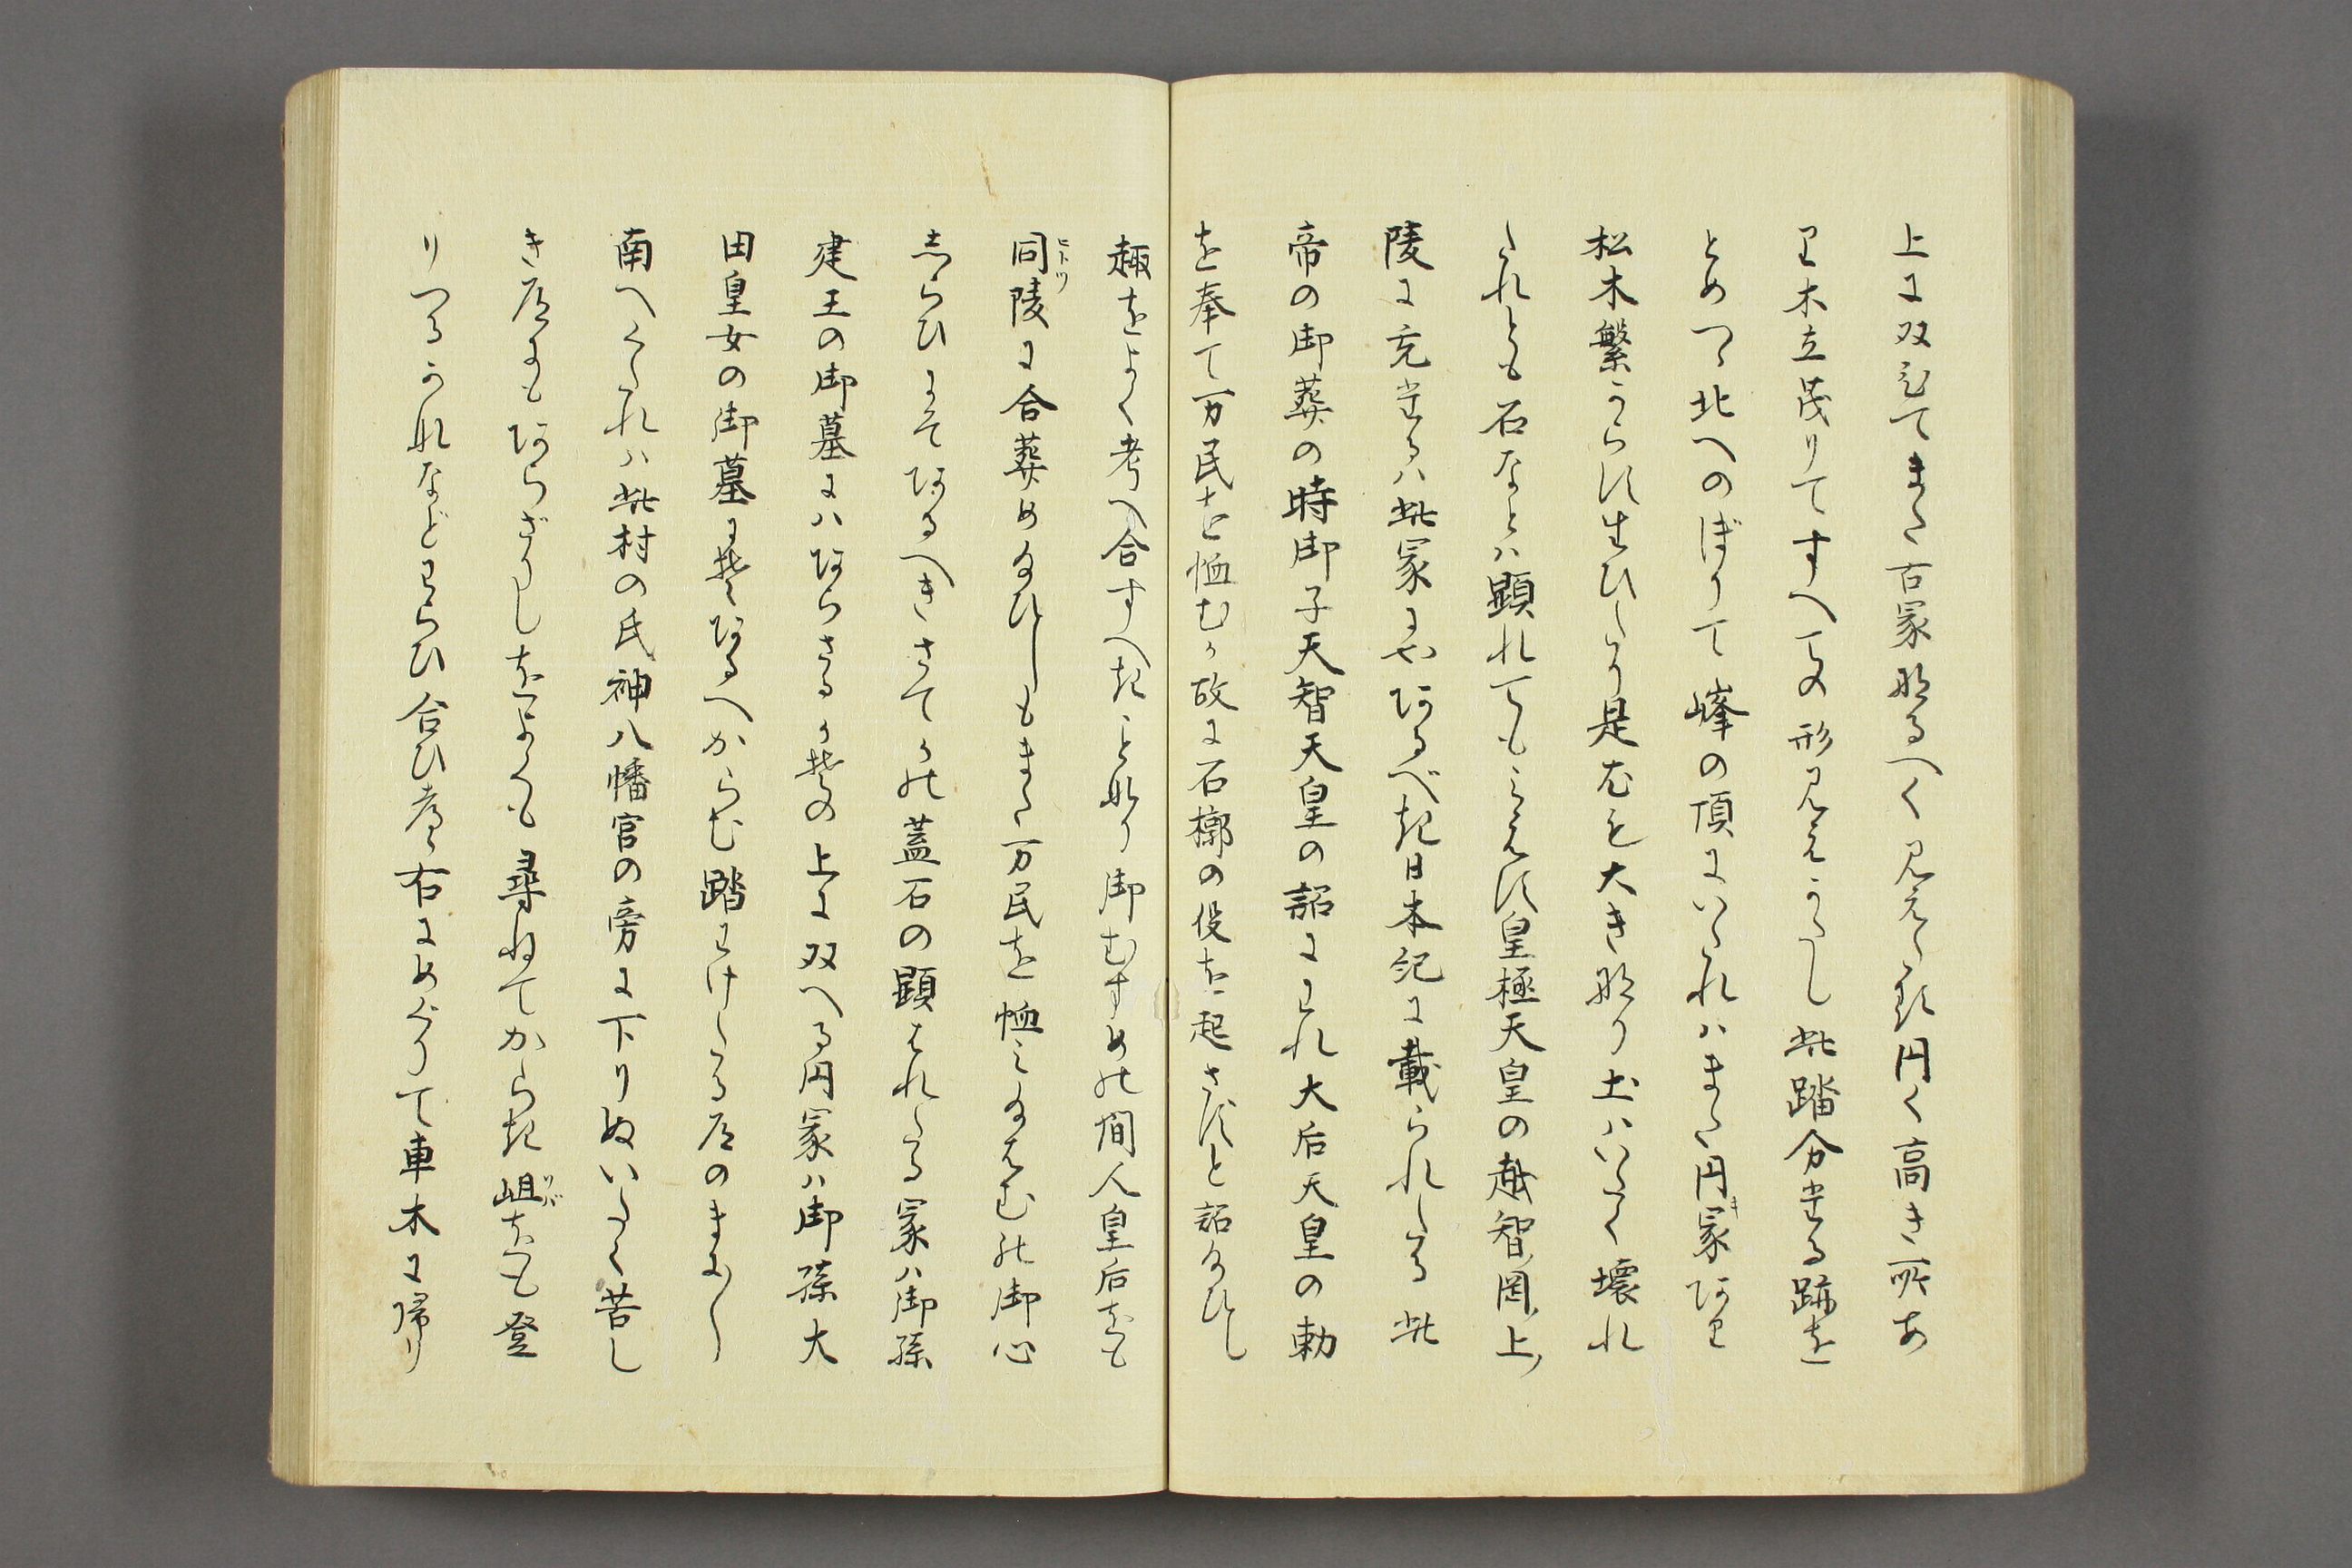 上に双ひてまた古冢なるへく見えたる円く高き所あ
り木立茂りてすへての形見えかたし此踏分たる跡を
とめつゝ北へのぼりて峰の頂にいたれハまた円キ冢あり
松木繁からす生ひたり是尤も大き なり土ハいたく壊れ
たれとも石なとハ顕れてもみえす皇極天皇の越智ノ岡ノ上ノ
陵に充たるハ此冢にやあるべき日本紀に載られたる此
帝の御葬の時御子天智天皇の詔にわれ大后天皇の勅
を奉て万民を恤むか故に石槨の役を起さずと詔給ひし
趣をよく考へ合すへきこと なり御むすめの間人皇后をも
同ヒトツ陵に合葬め給ひしもまた万民を恤み給はむの御心
しらひにてあるへきさてかの蓋石の顕はれたる冢ハ御孫
建王の御墓にハあらさるか其の上に双へる円冢ハ御孫大
田皇女の御墓にそあるへからむ踏わけたる道のまにまに
南へくたれハ此村の氏神八幡宮の旁に下りぬいたく苦し
き道にもあらざりしをよくも尋ねてからき岨ソバをも登
りつるかななどわらひ合ひ考へ右にめぐりて車木に帰り